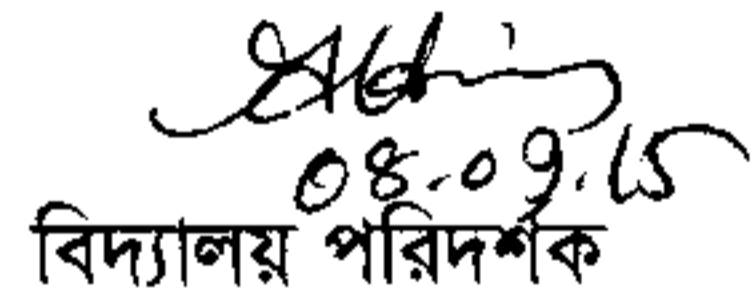 08.09.15
বিদ্যালয় পরিদর্শক